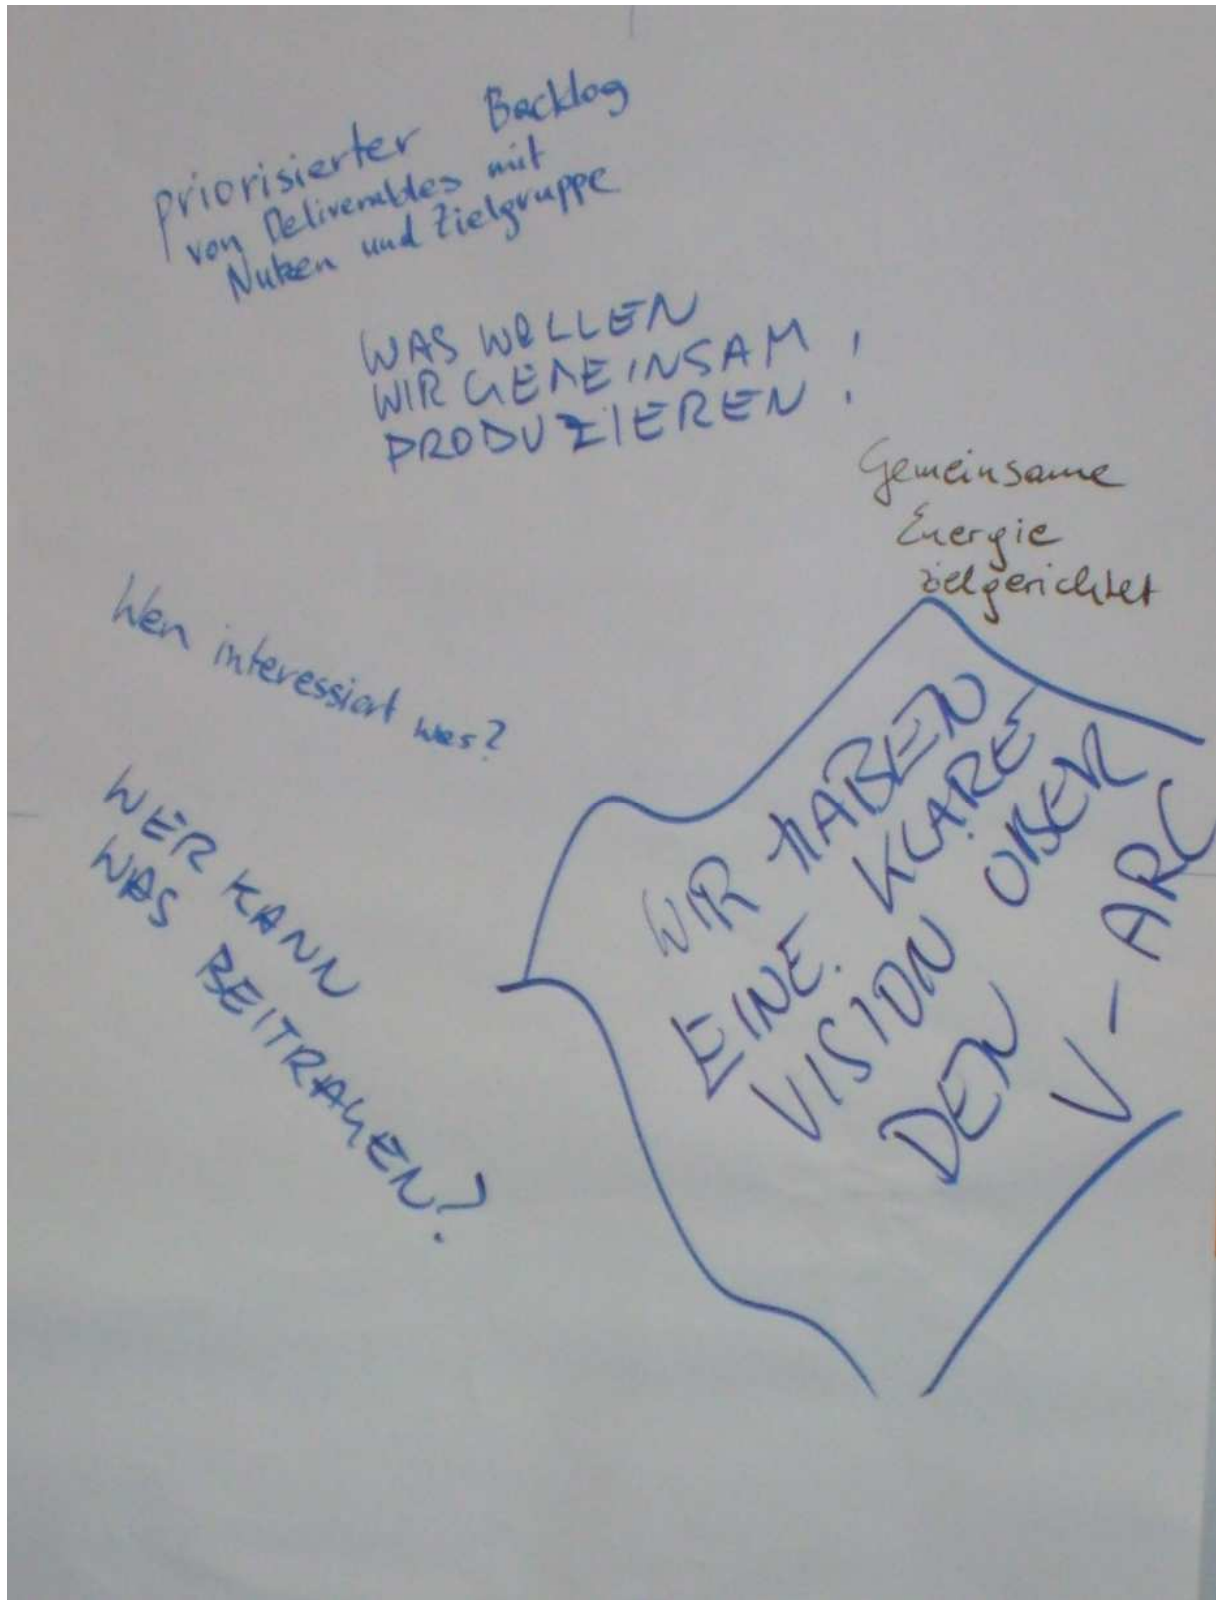 priorisierter Backlog
von Deliverables mit
Nutzen und Zielgruppe
WAS WOLLEN
WIR GEMEINSAM
PRODUZIEREN !
Gemeinsame
Energie
zielgerichtet
Wen interessiert was?
WER KANN
WAS BEITRAGEN?
WIR HABEN
EINE KLARE
VISION ÜBER
DEN
V-ARC